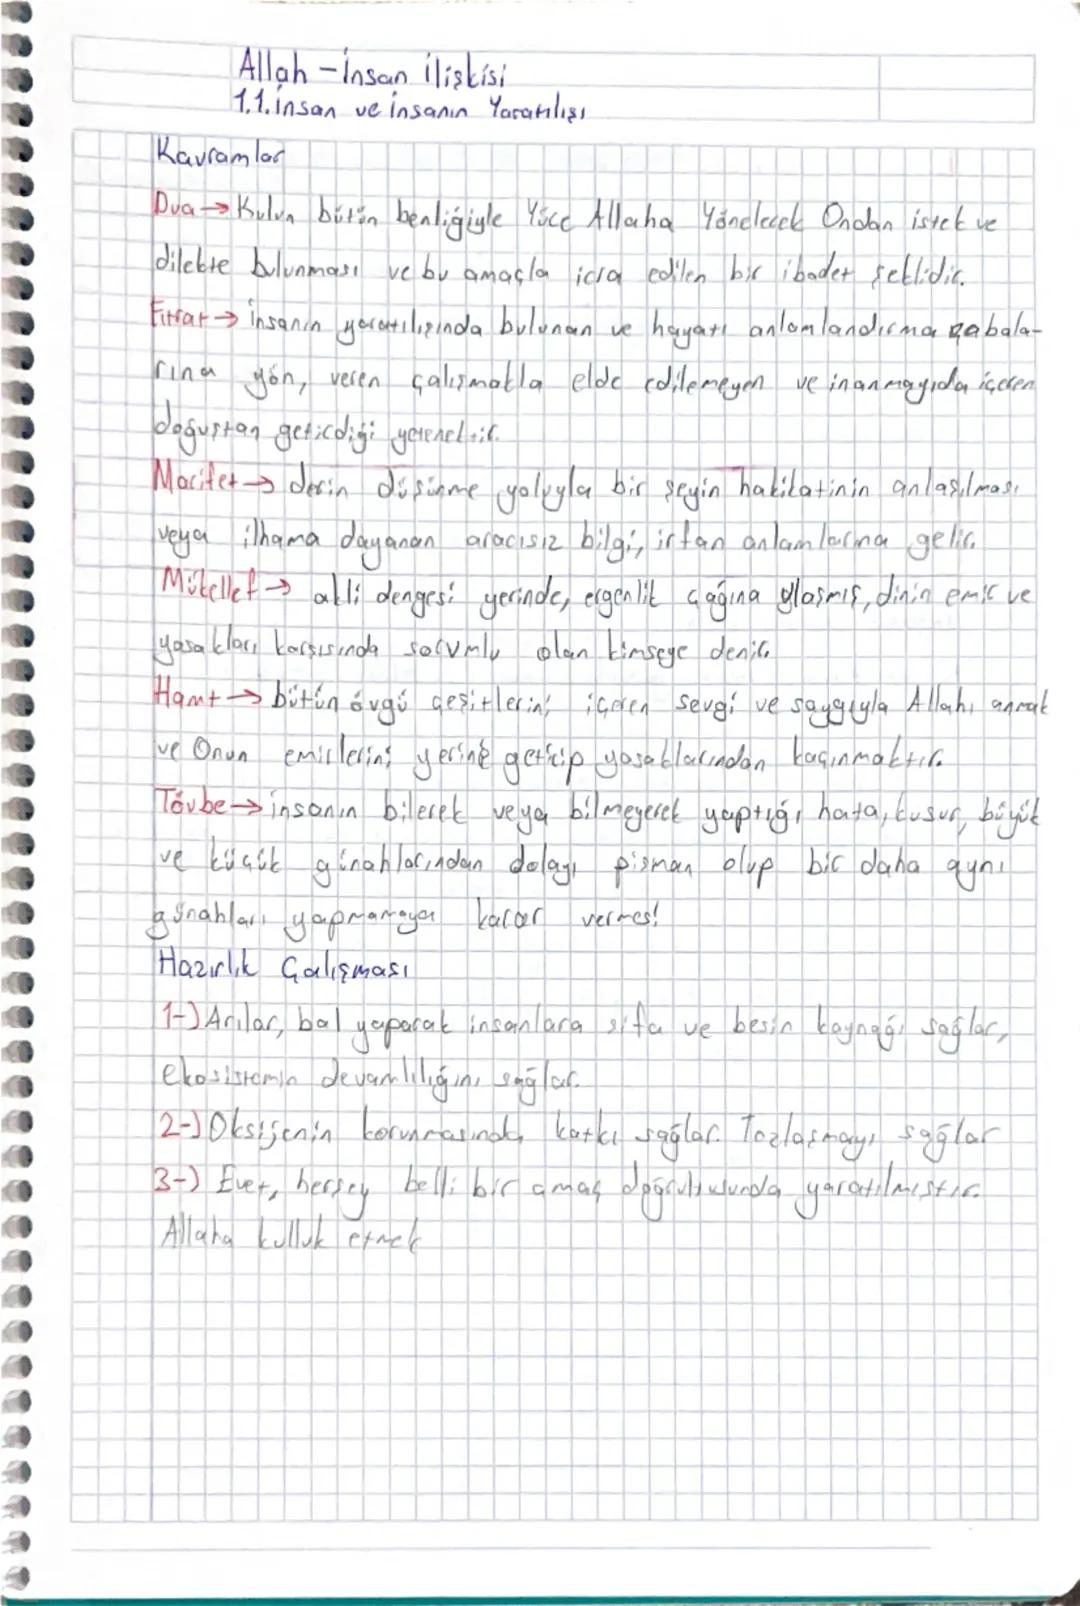 Allah - İnsan İlişkisi
1.1. İnsan ve İnsanın Yaratılışı
Kavramlar
Dua → Kulun bütün benliğiyle Yüce Allaha Yönelerek Ondan istek ve
dilekte bulunması ve bu amaçla icra edilen bir ibadet şeklidir.
Fıtrat → İnsanın yaratılışında bulunan ve hayatı anlamlandırma çabala-
rına yön, veren çalışmakla elde edilemeyen ve inanmayıda içeren
doğuştan getirdiği yetenektir.
Marifet → derin düşünme yoluyla bir şeyin hakikatinin anlaşılması
veya ilhama dayanan aracısız bilgi, irfan anlamlarına gelir.
Mükellef → akli dengesi yerinde, ergenlik çağına ulaşmış, dinin emir ve
yasakları karşısında sorumlu olan kimseye denir.
Hamt → bütün övgü çeşitlerini içeren sevgi ve saygıyla Allahı anmak
ve Onun emirlerini yerine getirip yasaklarından kaçınmaktır.
Tövbe → insanın bilerek veya bilmeyerek yaptığı hata, kusur, büyük
ve küçük günahlarından dolayı pişman olup bir daha aynı
günahları yapmamaya karar vermesi
Hazırlık Çalışması
1-) Arılar, bal yaparak insanlara şifa ve besin kaynağı sağlar,
ekosistemin devamlılığını sağlar.
2-) Oksijenin korunmasında katkı sağlar. Tozlaşmayı sağlar
3-) Evet, herşey belli bir amaç doğrultusunda yaratılmıştır.
Allaha kulluk etmek